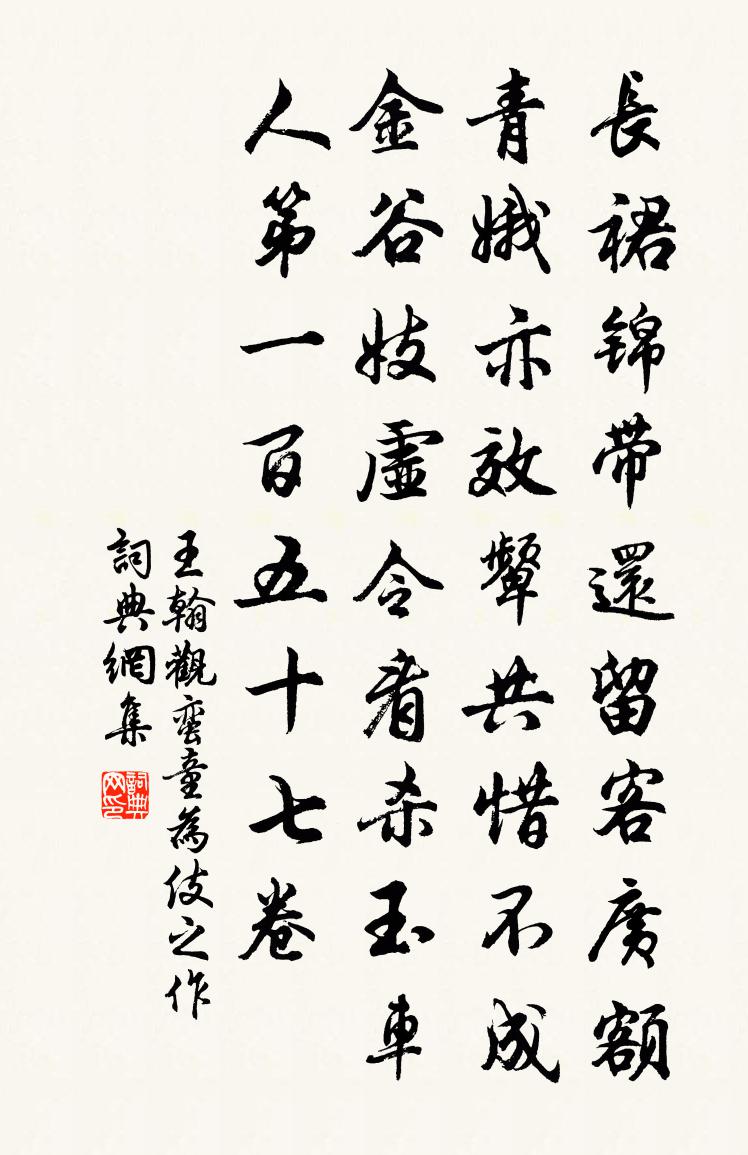 長裙錦帶還留客廣額
青娥亦效顰共惜不成
金谷妓虛令看殺玉車
人第一百五十七卷
王翰觀蠻童為伎之作
詞典網集
詞典网印